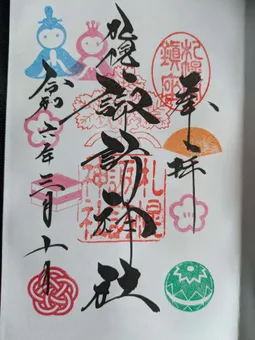 奉拝
札幌鎮座
札幌
諏訪神社
札幌諏訪神社
令和六年三月十一日